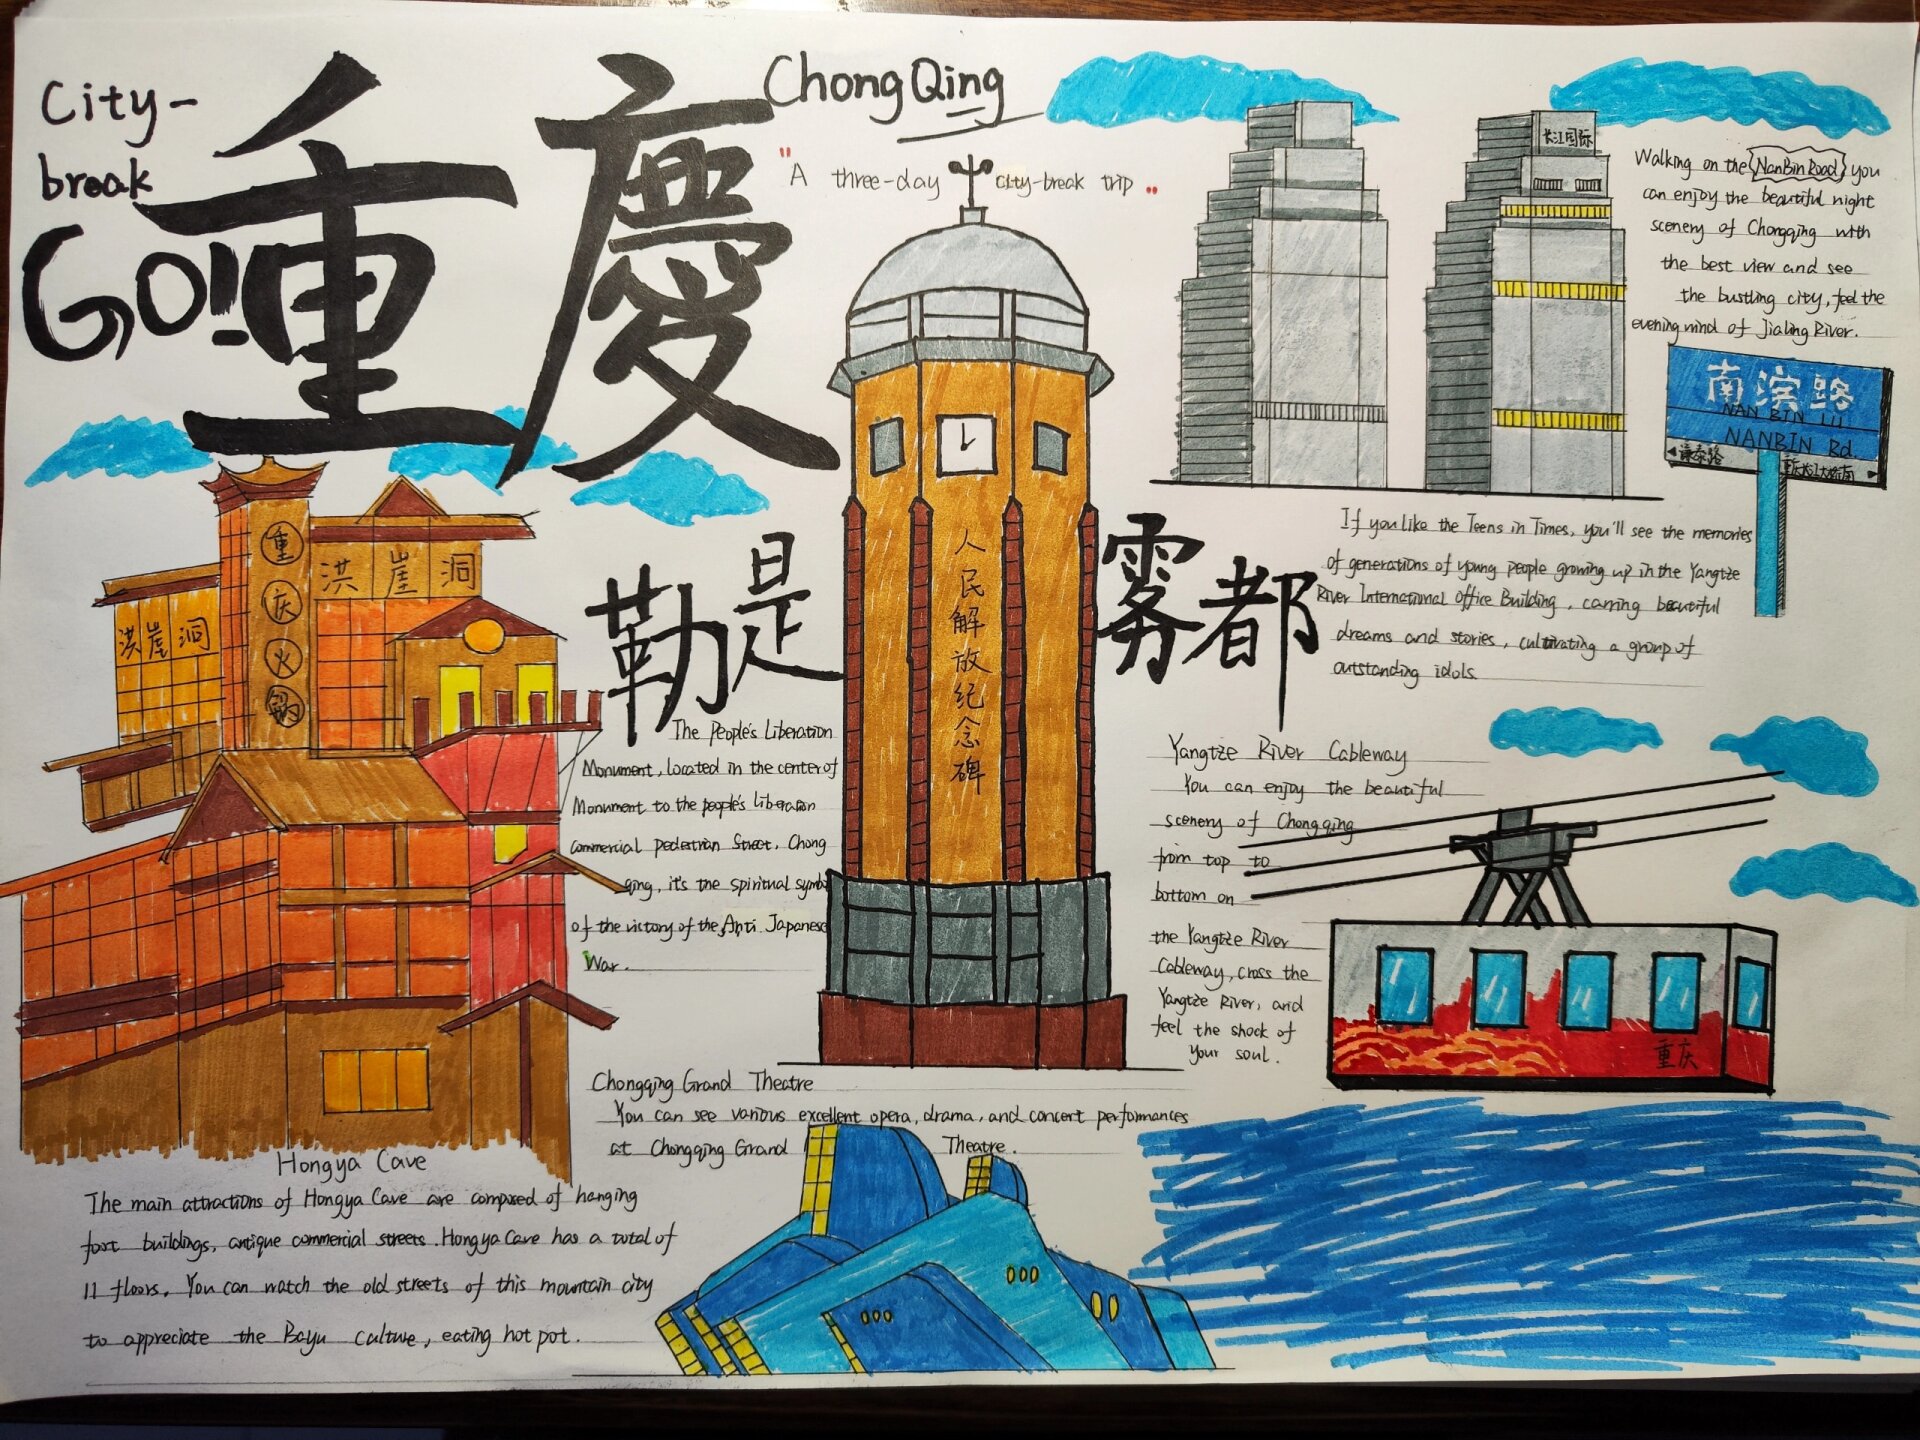 City-
break
GO!!
重慶
ChongQing
"A three-day city-break trip"
长江国际
Walking on the NanBin Road you
can enjoy the beautiful night
scenery of Chongqing with
the best view and see
the bustling city, feel the
evening wind of Jialing River.
南滨路
NAN BIN LU
NANBIN Rd.
If you like the Teens in Times, you'll see the memories
of generations of young people growing up in the Yangtze
River International Office Building, carring beautiful
dreams and stories, cultivating a group of
outstanding idols.
勒是
雾都
重庆火锅
洪崖洞
洪崖洞
人民解放纪念碑
The People's Liberation
Monument, located in the center of
Monument to the people's Liberation
commercial pedestrian Street, Chong
qing, it's the spiritual symbol
of the victory of the Anti Japanese
War.
Yangtze River Cableway
You can enjoy the beautiful
scenery of Chongqing
from top to
bottom on
the Yangtze River
Cableway, cross the
Yangtze River, and
feel the shock of
your soul.
重庆
Chongqing Grand Theatre
You can see various excellent opera, drama, and concert performances
at Chongqing Grand Theatre.
Hongya Cave
The main attractions of Hongya Cave are composed of hanging
foot buildings, antique commercial streets. Hongya Cave has a total of
11 floors. You can watch the old streets of this mountain city
to appreciate the Bayu culture, eating hot pot.